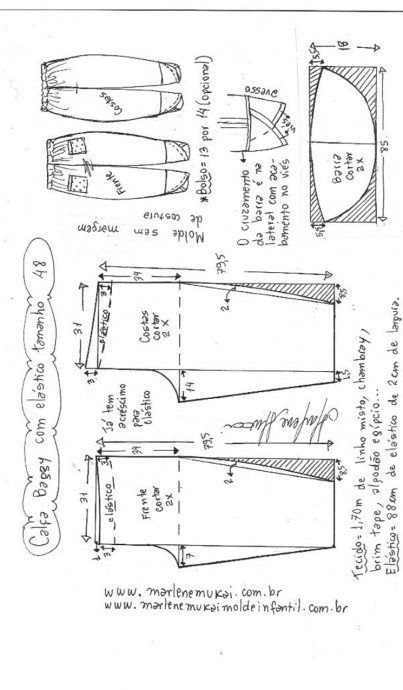 Calça Baggy com elástico tamanho 48
Molde sem margem
de costura
Costas
Frente
*Bolso = 13 por 14 (opcional)
O cruzamento
da barra é na
lateral com aca-
bamento no viés
avesso
viés
18
5,5
5,5
85
Barra
cortar
2x
31
3
3
elástico
34
79,5
Costas
cortar
2x
2
14
8,5
1,5
Já tem
acréscimo
para
elástico
31
1
3
elástico
34
79,5
Frente
cortar
2x
2
7
8,5
www.marlenemukai.com.br
www.marlenemukaimoldeinfantil.com.br
Tecido = 1,70m de linho misto, chambray,
brim tape, algodão egípcio...
Elástico = 88cm de elástico de 2cm de largura.